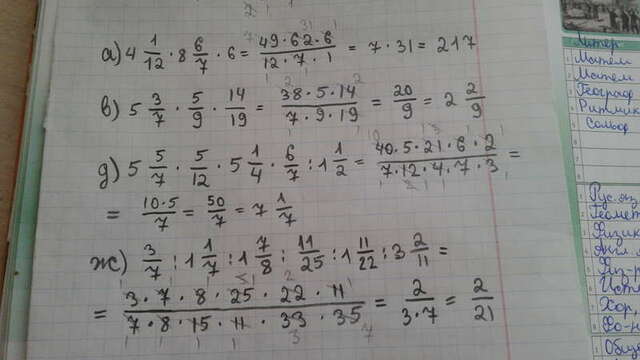 а) 4 1/12 · 8 6/7 · 6 = 49·62·6/12·7·1 = 7·31 = 217
в) 5 3/7 · 5/9 · 14/19 = 38·5·14/7·9·19 = 20/9 = 2 2/9
д) 5 5/7 · 5/12 · 5 1/4 · 6/7 : 1 1/2 = 40·5·21·6·2/7·12·4·7·3 =
= 10·5/7 = 50/7 = 7 1/7
ж) 3/7 : 1 1/7 : 1 7/8 : 11/25 : 1 11/22 : 3 2/11 =
= 3·7·8·25·22·11/7·8·15·11·33·35 = 2/3·7 = 2/21
Литер
Матем
Матем
Географ
Ритмик
Сольф
Рус. яз
Геомет
Физик
Англ. я
Физ-р
Ист
Хор,
Фо-н
Общ